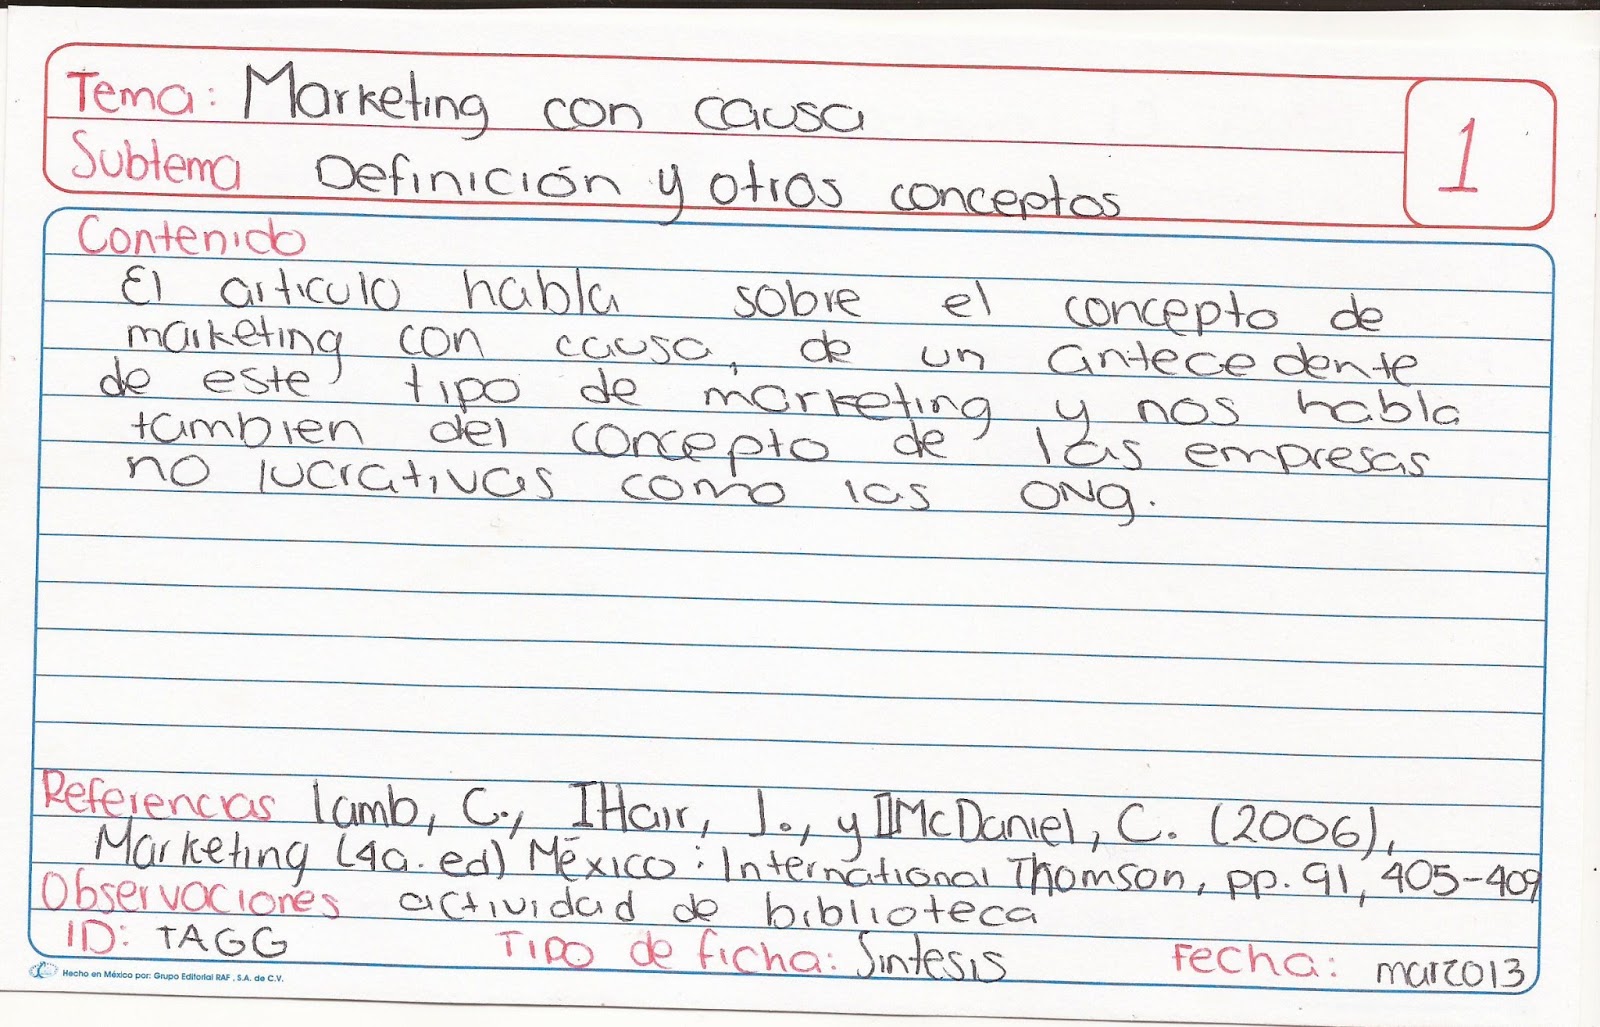 Tema: Marketing con causa
1
Subtema Definición y otros conceptos
Contenido
El articulo habla sobre el concepto de
marketing con causa, de un antecedente
de este tipo de marketing y nos habla
tambien del concepto de las empresas
no lucrativas como las ONg.
Referencias lamb, C., IHair, J., y IIMcDaniel, C. (2006),
Marketing (4a. ed) México: International Thomson, pp. 91, 405-409
Observaciones actividad de biblioteca
ID: TAGG Tipo de ficha: Síntesis Fecha: marzo13
Hecho en México por: Grupo Editorial RAF, S.A. de C.V.